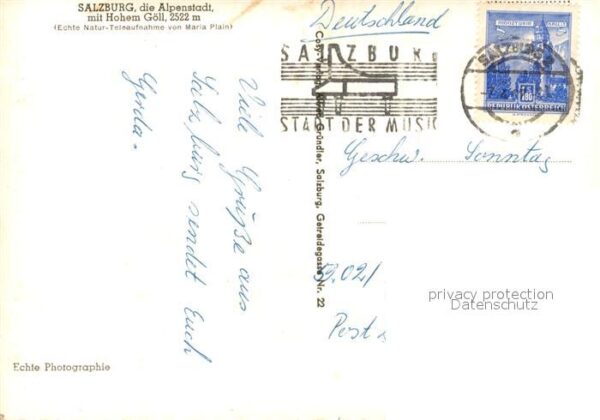 SALZBURG, die Alpenstadt,
mit Hohem Göll, 2522 m
(Echte Natur-Teleaufnahme von Maria Plain)
Deutschland
SALZBURG
STADT DER MUSIK
SALZBURG 2
MÜNZTURM HALL
REPUBLIK ÖSTERREICH
Viele Grüße aus
Salzburg sendet Euch
Gerda.
Gründler, Salzburg, Getreidegasse Nr. 22
Geschw. Sonntag
5302/
Post
privacy protection
Datenschutz
Echte Photographie